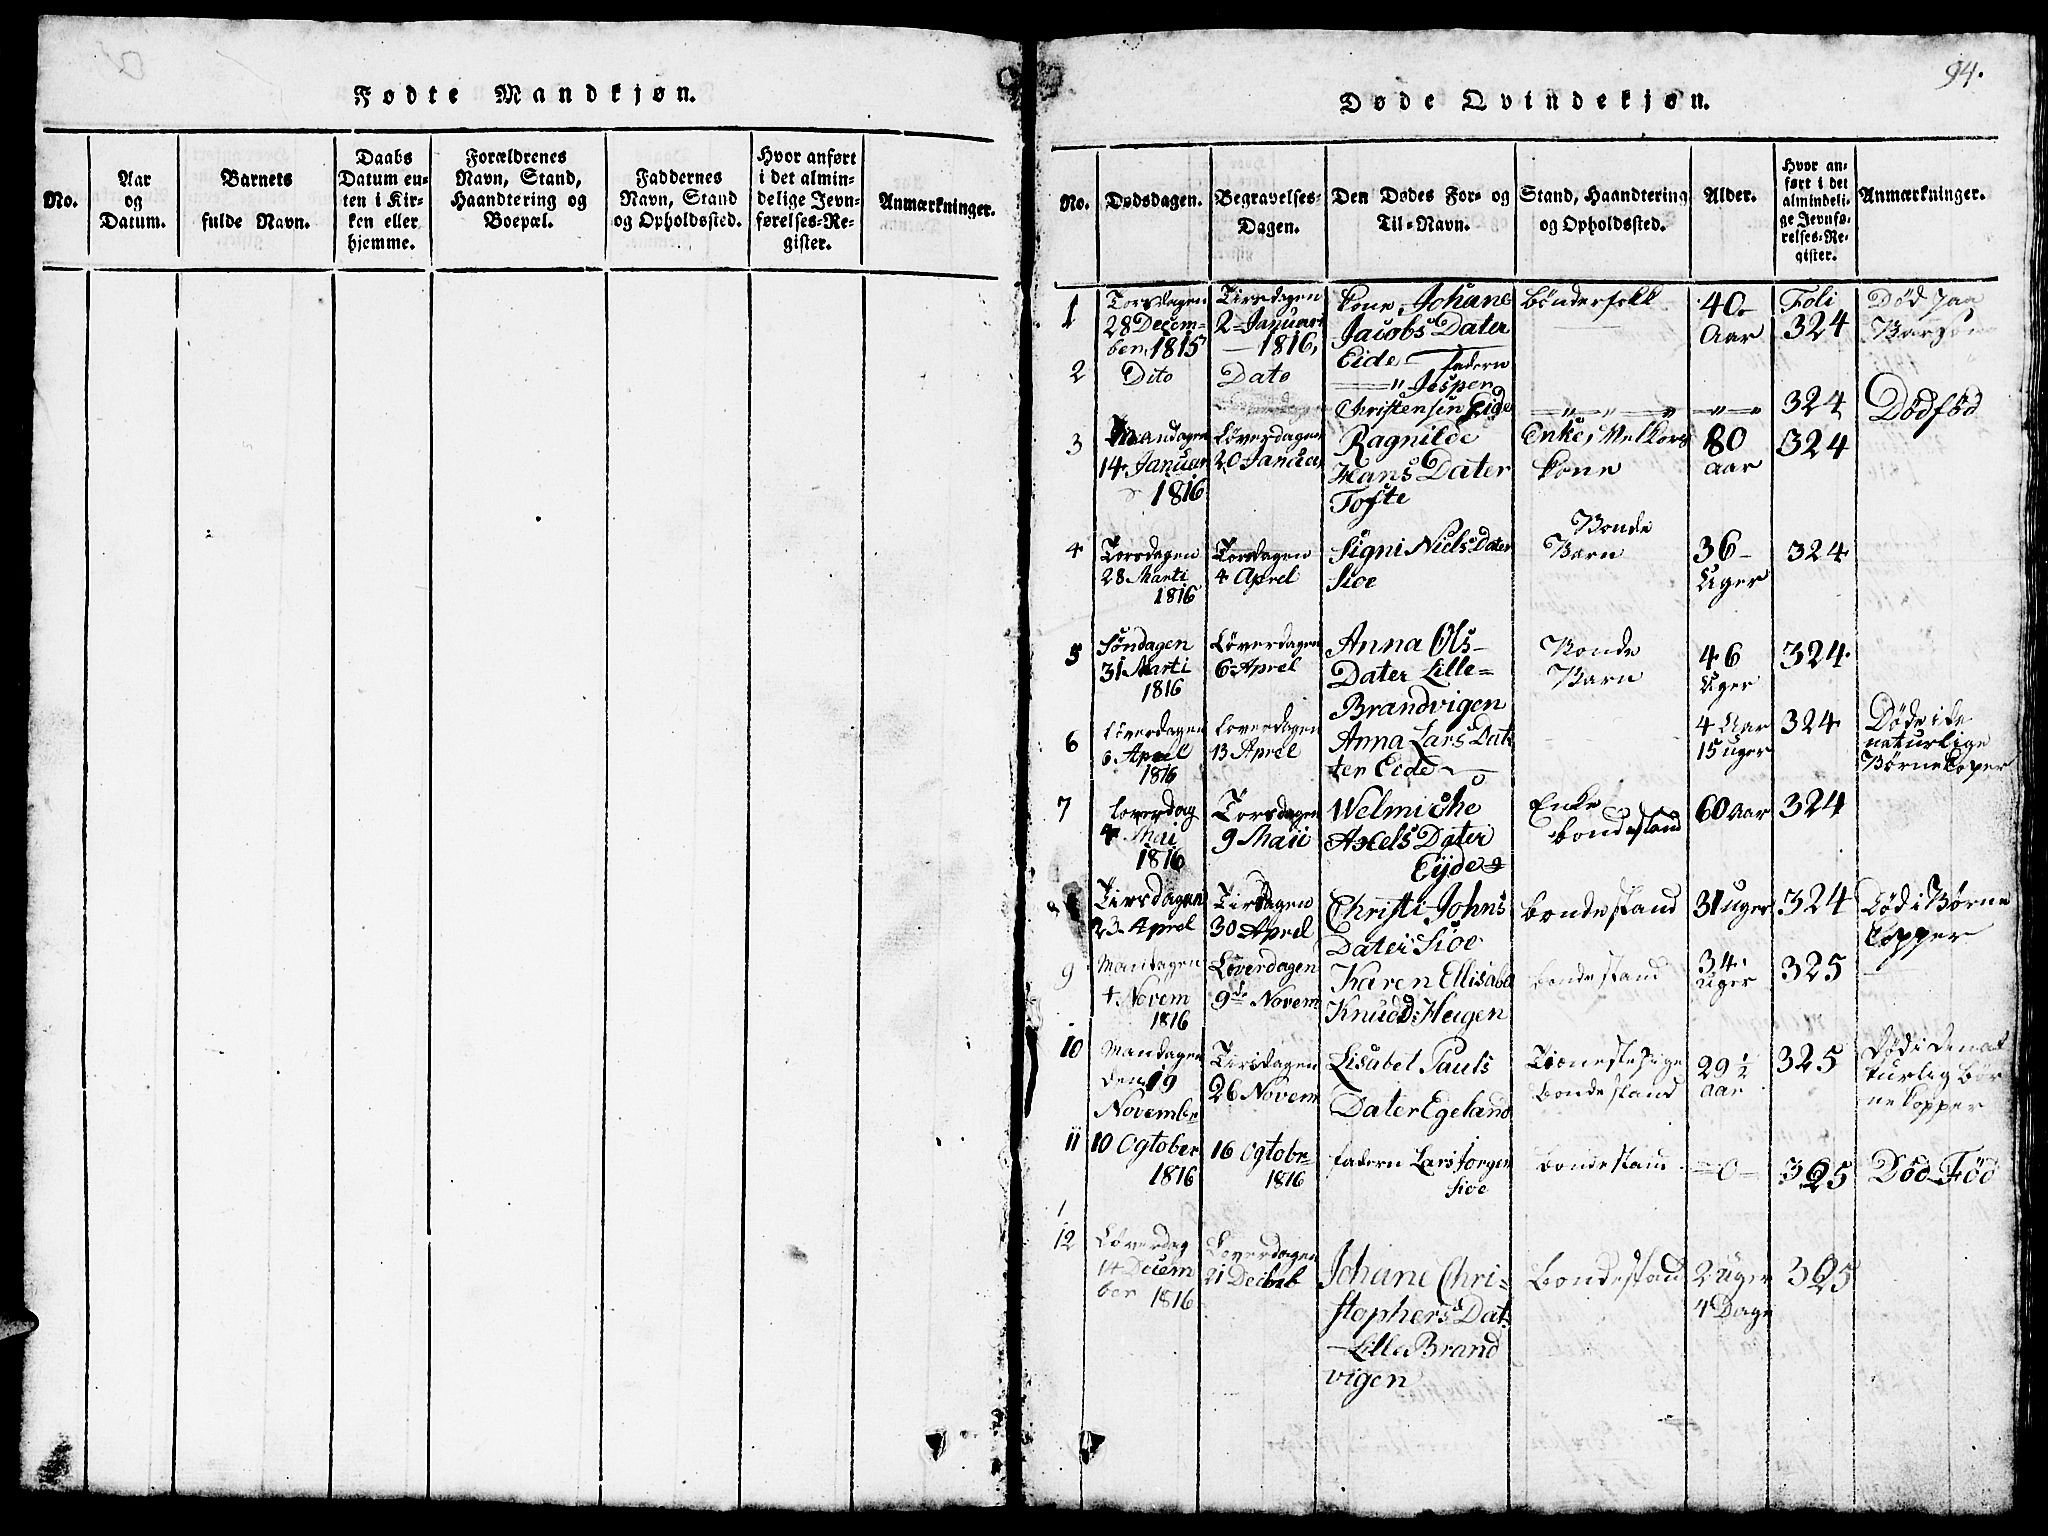 Fødte Mandkjøn.
No.
Aar
og
Datum.
Barnets
fulde Navn.
Daabs
Datum en-
ten i Kir-
ken eller
hjemme.
Forældrenes
Navn, Stand,
Haandtering og
Boepæl.
Faddernes
Navn, Stand
og Opholdssted.
Hvor anført
i det almin-
delige Jevn-
førelses-Re-
gister.
Anmærkninger.
94.
Døde Qvindekjøn.
No.
Dødsdagen.
Begravelses-
Dagen.
Den Dødes For- og
Til-Navn.
Stand, Haandtering
og Opholdssted.
Alder.
Hvor an-
ført i det
almindeli-
ge Jevnfø-
relses-Re-
gister.
Anmærkninger.
1
Torsdagen
28 Decem-
ber 1815
Tirsdagen
2 Januari
1816
Kone Johane
Jacobs Dater
Eide
Bønderfolk
40
Aar
Foli
324
Død paa
2
Dito
Dato
fadern
Jesper
Christensen Eide
324
Dødfød
3
Mandagen
14 Januar
1816
Løverdagen
20 Januar
Ragnilde
Hans Dater
Tofte
Enke,
Kone
80
aar
324
4
Torsdagen
28 Marti
1816
Torsdagen
4 Aprel
Signi Niels Dater
Sioe
Bonde
Barn
36
Uger
324
5
Søndagen
31 Marti
1816
Løverdagen
6 Aprel
Anna Ols-
Dater Lille=
Brandvigen
Bonde
Barn
46
Uger
324
6
Løverdagen
6 Aprel
1816
Loverdagen
13 Aprel
Anna Lars Dat-
ter Eide
4 Aar
15 uger
324
Døde i de
naturlige
Børnekoper
7
Loverdag
4 Mai
1816
Torsdagen
9 Maii
Welmiche
Axels Dater
Eijde
Enke
bondestand
60 Aar
324
Tirsdagen
23 Aprel
Tirsdagen
30 Aprel
Christi Johns
Dater Sioe
bondestand
31 uger
324
Død i Børne
kopper
9
Mandagen
4 Novem
1816
Løverdagen
9de Novem
Karen Ellisabe
Knuds D: Heigen
bondestand
34
Uger
325
10
Mandagen
den 19
November
Tirsdagen
26 Novem
Lisabel Pauls
Dater Egeland
Tienestepige
bondestand
29 1/2
aar
325
Død i de nat
turlig bør
nekopper
11
10 Ogtober
1816
16 Ogtobr
1816
fadern Lars Jorgen
Sioe
bondestand
-0-
325
Død Fød
12
Løverdag
14 Decem
ber 1816
Loverdagen
21 Decbeb
Johane Chri=
stophers Dat
Lille Brand
vigen
Bondestand
2 Uger
4 Dage
325